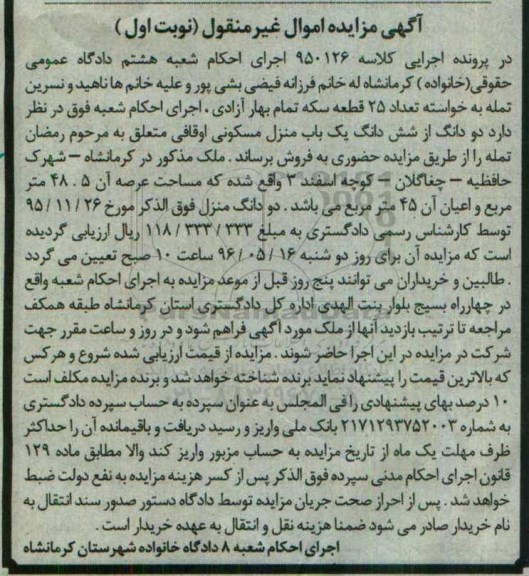 آگهی مزایده اموال غیرمنقول (نوبت اول)
در پرونده اجرایی کلاسه ۹۵۰۱۲۶ اجرای احکام شعبه هشتم دادگاه عمومی
حقوقی(خانواده) کرمانشاه له خانم فرزانه فیضی بشی پور و علیه خانم ها ناهید و نسرین
تمله به خواسته تعداد ۲۵ قطعه سکه تمام بهار آزادی ، اجرای احکام شعبه فوق در نظر
دارد دو دانگ از شش دانگ یک باب منزل مسکونی اوقافی متعلق به مرحوم رمضان
تمله را از طریق مزایده حضوری به فروش برساند . ملک مذکور در کرمانشاه – شهرک
حافظیه – چغاگلان – کوچه اسفند ۳ واقع شده که مساحت عرصه آن ۴۸ . ۵ متر
مربع و اعیان آن ۴۵ متر مربع می باشد . دو دانگ منزل فوق الذکر مورخ ۹۵ / ۱۱ / ۲۶
توسط کارشناس رسمی دادگستری به مبلغ ۱۱۸ / ۳۳۳ / ۳۳۳ ریال ارزیابی گردیده
است که مزایده آن برای روز دو شنبه ۱۶ / ۰۵ / ۹۶ ساعت ۱۰ صبح تعیین می گردد
. طالبین و خریداران می توانند پنج روز قبل از موعد مزایده به اجرای احکام شعبه واقع
در چهارراه بسیج بلوار بنت الهدی اداره کل دادگستری استان کرمانشاه طبقه همکف
مراجعه تا ترتیب بازدید آنها از ملک مورد آگهی فراهم شود و در روز و ساعت مقرر جهت
شرکت در مزایده در این اجرا حاضر شوند . مزایده از قیمت ارزیابی شده شروع و هر کس
که بالاترین قیمت را پیشنهاد نماید برنده شناخته خواهد شد و برنده مزایده مکلف است
۱۰ درصد بهای پیشنهادی را فی المجلس به عنوان سپرده به حساب سپرده دادگستری
به شماره ۲۱۷۱۲۹۳۷۵۲۰۰۳ بانک ملی واریز و رسید دریافت و باقیمانده آن را حداکثر
ظرف مهلت یک ماه از تاریخ مزایده به حساب مزبور واریز کند والا مطابق ماده ۱۲۹
قانون اجرای احکام مدنی سپرده فوق الذکر پس از کسر هزینه مزایده به نفع دولت ضبط
خواهد شد . پس از احراز صحت جریان مزایده توسط دادگاه دستور صدور سند انتقال به
نام خریدار صادر می شود ضمنا هزینه نقل و انتقال به عهده خریدار است .
اجرای احکام شعبه ۸ دادگاه خانواده شهرستان کرمانشاه